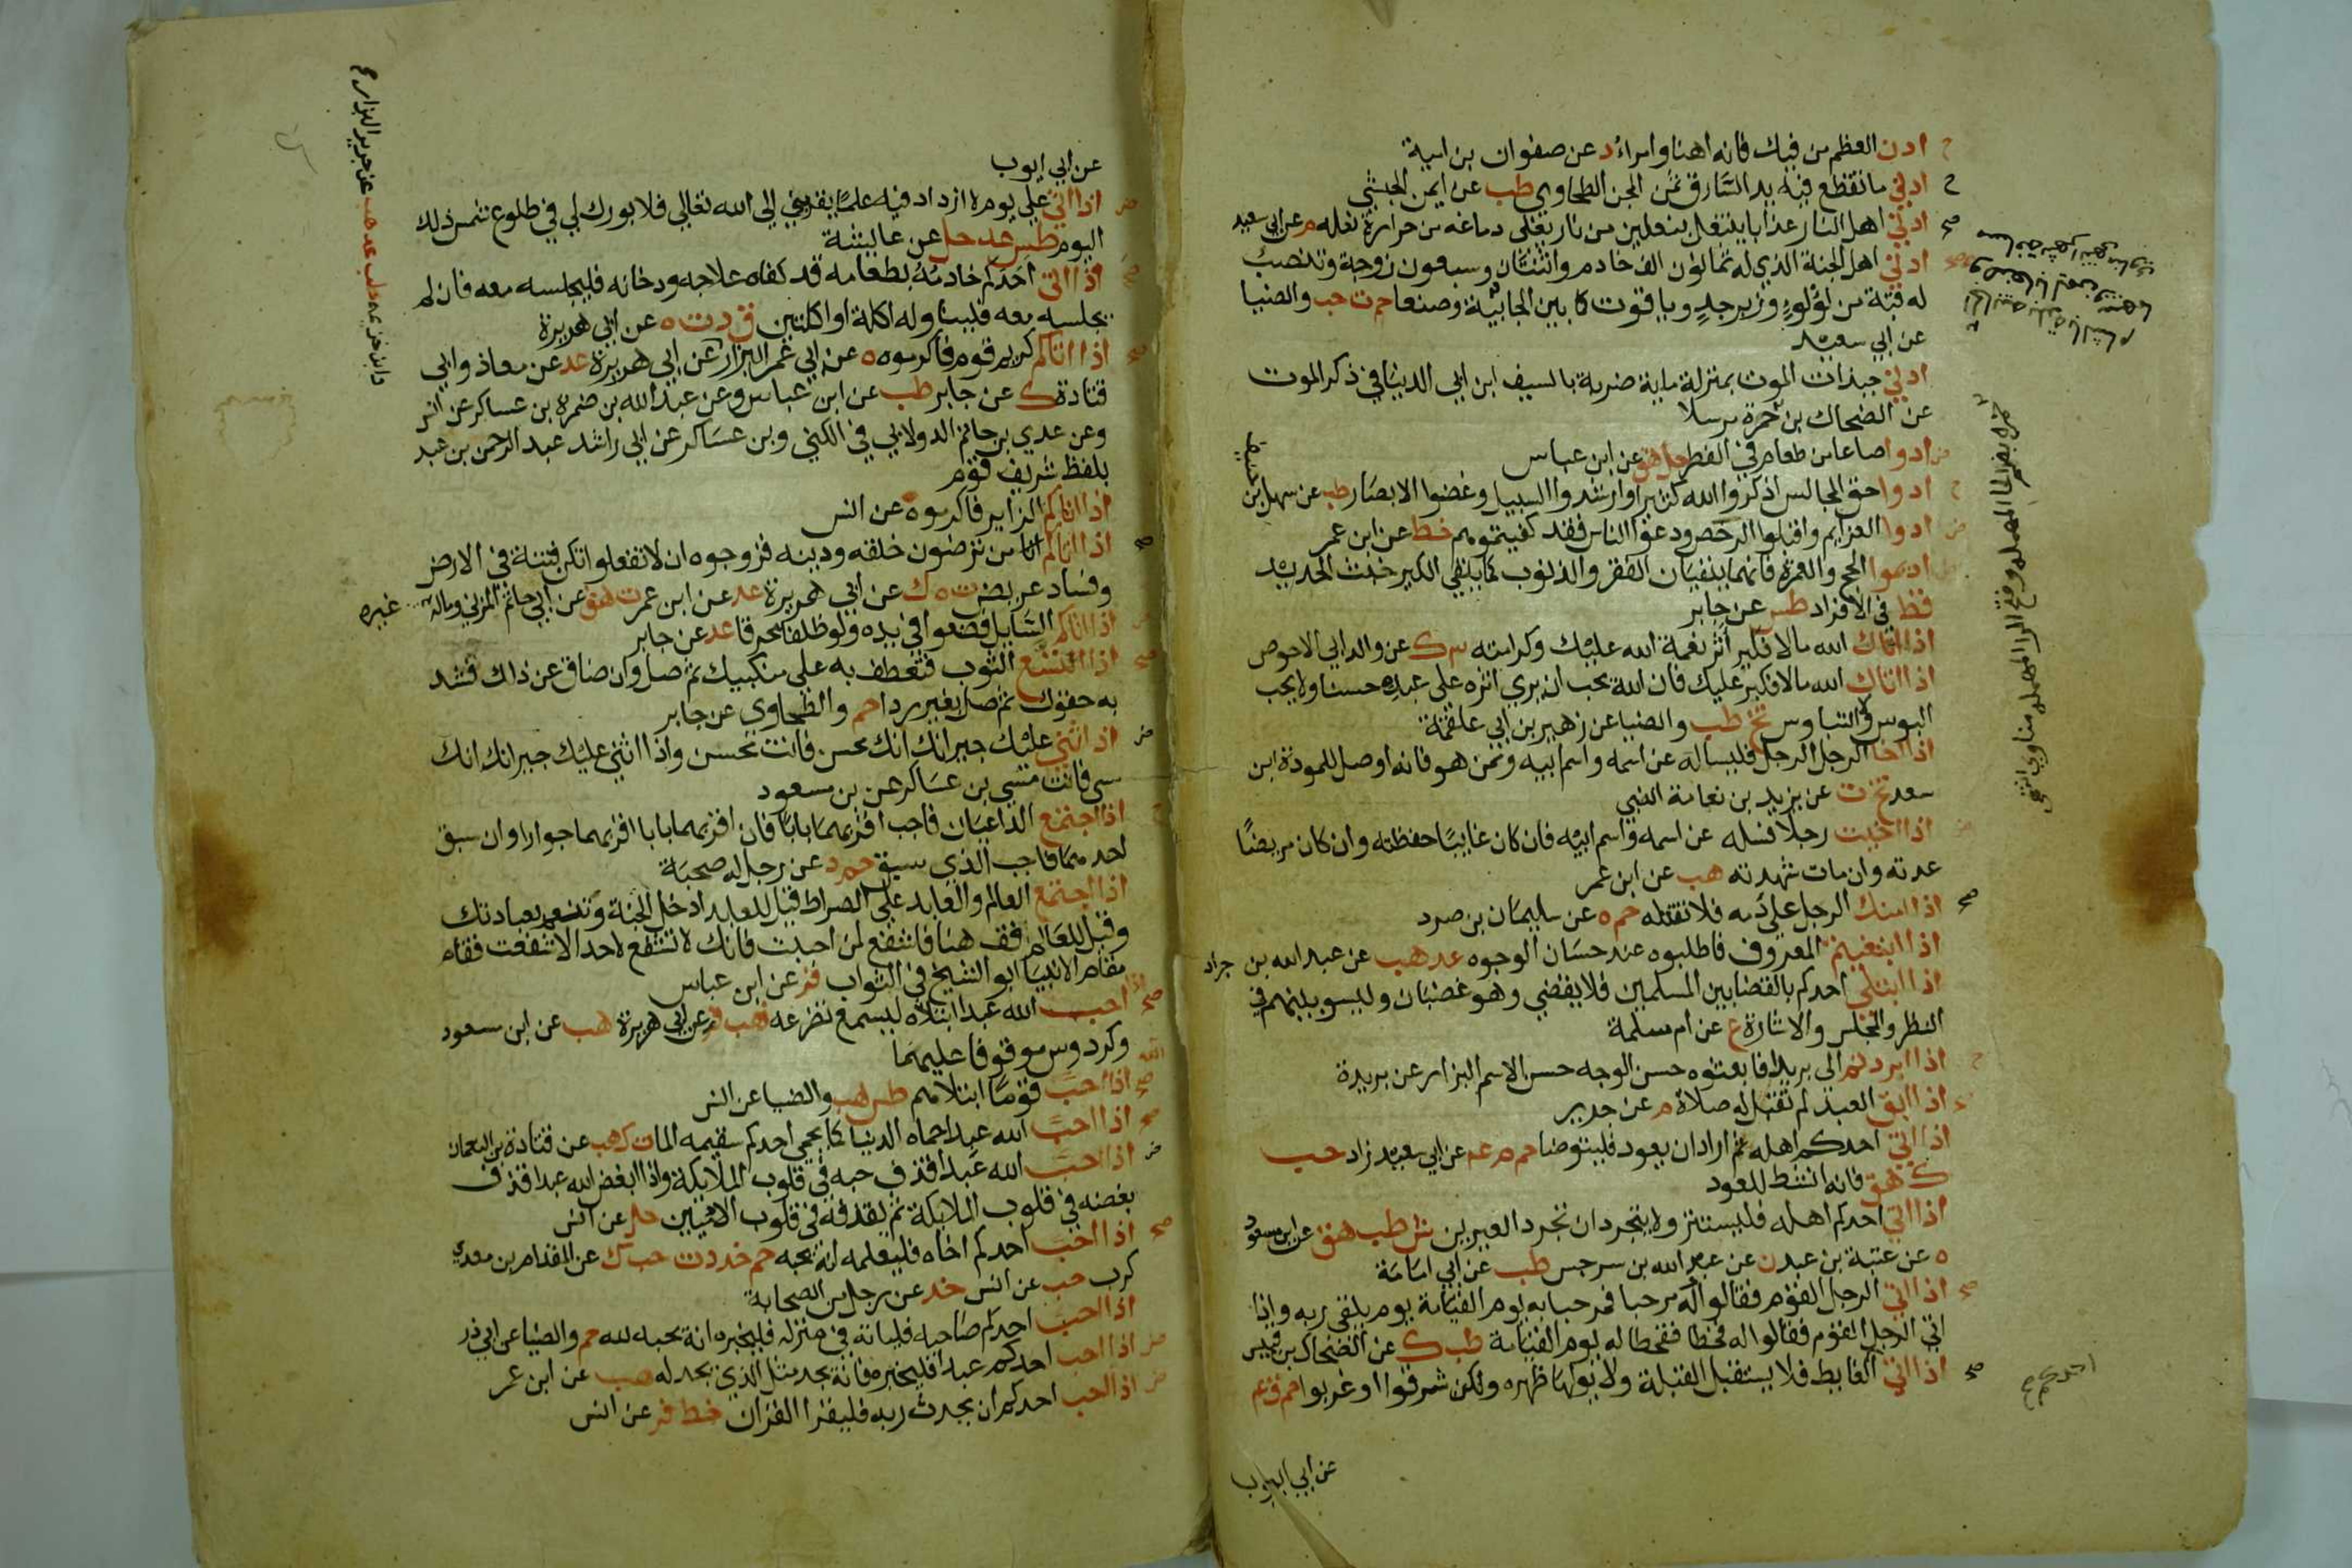 ادن العظم من فيك فانه اهنا وامراء د عن صفوان بن امية
ح ادني ما تقطع فيه يد السارق ثمن المجن الطحاوي طب عن ايمن الحبشي
صح ادني اهل النار عذابا ينتعل بنعلين من نار يغلي دماغه من حرارة نعله م عن ابي سعيد
ادني اهل الجنة الذي له ثمانون الف خادم واثنتان وسبعون زوجة وتنصب
له قبة من لؤلوء وزبرجد وياقوت كما بين الجابية وصنعا حم ت حب والضيا
عن ابي سعيد
ادني جبذات الموت بمنزلة ماية ضربة بالسيف ابن ابي الدنيا في ذكر الموت
عن الضحاك بن حمرة مرسلا
ض ادوا صاعا من طعام في الفطر حل هق عن ابن عباس
ح ادوا حق المجالس اذكروا الله كثيرا وارشدوا السبيل وغضوا الابصار طب عن سهل بن
حنيف
ض ادوا العزايم واقبلوا الرخص ودعوا الناس فقد كفيتموهم خط عن ابن عمر
اديموا الحج والعمرة فانهما ينفيان الفقر والذنوب كما ينفي الكير خبث الحديد
قط في الافراد طس عن جابر
اذا اتاك الله مالا فلير اثر نعمة الله عليك وكرامته ٣ ك عن والد ابي الاحوص
اذا اتاك الله مالا فلير عليك فان الله يحب ان يري اثره علي عبده حسنا ولا يحب
البوس ولا التباوس تخ طب والضيا عن زهير بن ابي علقمة
اذا اخا الرجل الرجل فليساله عن اسمه واسم ابيه وممن هو فانه اوصل للمودة ابن
سعد تخ ت عن يزيد بن نعامة الضبي
ض اذا اخيت رجلا فسله عن اسمه واسم ابيه فان كان غايبا حفظته وان كان مريضا
عدته وان مات شهدته هب عن ابن عمر
صح اذا امنك الرجل علي دمه فلا تقتله حم ه عن سليمان بن صرد
اذا ابتغيتم المعروف فاطلبوه عند حسان الوجوه عد هب عن عبد الله بن جراد
اذا ابتلي احدكم بالقضا بين المسلمين فلا يقضي وهو غضبان وليسو بينهم في
النظر والمجلس والاشارة ع عن ام سلمة
ح اذا ابردتم الي بريدا فابعثوه حسن الوجه حسن الاسم البزار عن بريدة
اذا ابق العبد لم تقبل له صلاة م عن جرير
اذا اتي احدكم اهله ثم اراد ان يعود فليتوضا حم م عه عن ابي سعيد زاد حب
ك هق فانه انشط للعود
اذا اتي احدكم اهله فليستتر ولا يتجردان تجرد العيرين ش طب هق عن ابن مسعود
ه عن عتبة بن عبد ن عن عبد الله بن سرجس طب عن ابي امامة
صح اذا اتي الرجل القوم فقالوا له مرحبا فمرحبا به يوم القيامة يوم يلقي ربه واذا
اتي الرجل القوم فقالوا له قحطا فقحطا له يوم القيامة طب ك عن الضحاك بن قيس
صح اذا اتي الغايط فلا يستقبل القبلة ولا يولها ظهره ولكن شرقوا او غربوا حم ق ع
احدكم صح
عن ابي ايوب
حمرة بضم الحا المهملة وفتح الرا المهملة مناوي انتهي
عن ابي ايوب
ض اذا اتي علي يوم لا ازداد فيه علما يقربني الي الله تعالي فلا بورك لي في طلوع شمس ذلك
اليوم طس عد حل عن عايشة
صح اذا اتي احدكم خادمه بطعامه قد كفاه علاجه ودخانه فليجلسه معه فان لم
يجلسه معه فليناوله اكلة او اكلتين ق د ت ه عن ابي هريرة
صح اذا اتاكم كريم قوم فاكرموه ه عن ابن عمر البزار عن ابي هريرة عد عن معاذ وابي
قتادة ك عن جابر طب عن ابن عباس وعن عبد الله بن ضمرة بن عساكر عن انس
وعن عدي بن حاتم الدولابي في الكني وبن عساكر عن ابي راشد عبد الرحمن بن عبد
بلفظ شريف قوم
اذا اتاكم الزاير فاكرموه ه عن انس
صح اذا اتاكم من ترضون خلقه ودينه فزوجوه ان لا تفعلوا تكن فتنة في الارض
وفساد عريض ت ه ك عن ابي هريرة عد عن ابن عمر ت هق عن ابي حاتم المزني وماله غيره
اذا اتاكم السايل فضعوا في يده ولو ظلفا محرقا عد عن جابر
صح اذا اتسع الثوب فتعطف به علي منكبيك ثم صل وان ضاق عن ذاك فشد
به حقوك ثم صل بغير ردا حم والطحاوي عن جابر
ض اذا اثني عليك جيرانك انك محسن فانت محسن واذا اثني عليك جيرانك انك
مسي فانت مسي بن عساكر عن بن مسعود
ح اذا اجتمع الداعيان فاجب اقربهما بابا فان اقربهما بابا اقربهما جوارا وان سبق
احدهما فاجب الذي سبق حم د عن رجل له صحبة
اذا اجتمع العالم والعابد علي الصراط قيل للعابد ادخل الجنة وتنعم بعبادتك
وقيل للعالم قف هنا فاشفع لمن احببت فانك لا تشفع لاحد الا شفعت فقام
مقام الانبيا ابو الشيخ في الثواب فر عن ابن عباس
صح اذا احب الله عبدا ابتلاه ليسمع تضرعه هب فر عن ابي هريرة هب عن ابن مسعود
وكردوس موقوفا عليهما
صح اذا احب الله قوما ابتلاهم طس هب والضيا عن انس
صح اذا احب الله عبدا حماه الدنيا كما يحمي احدكم سقيمه الما ت ك هب عن قتادة بن النعمان
ض اذا احب الله عبدا قذف حبه في قلوب الملايكة واذا ابغض الله عبدا قذف
بغضه في قلوب الملايكة ثم يقذفه في قلوب الادميين حل عن انس
صح اذا احب احدكم اخاه فليعلمه انه يحبه حم خد د ت حب ك عن المقدام بن معدي
كرب حب عن انس خد عن رجل من الصحابة
اذا احب احدكم صاحبه فلياته في منزله فليخبره انه يحبه لله حم والضيا عن ابي ذر
ض اذا احب احدكم عبدا فليخبره فانه يجد مثل الذي يجد له هب عن ابن عمر
ض اذا احب احدكم ان يحدث ربه فليقرا القران خط فر عن انس